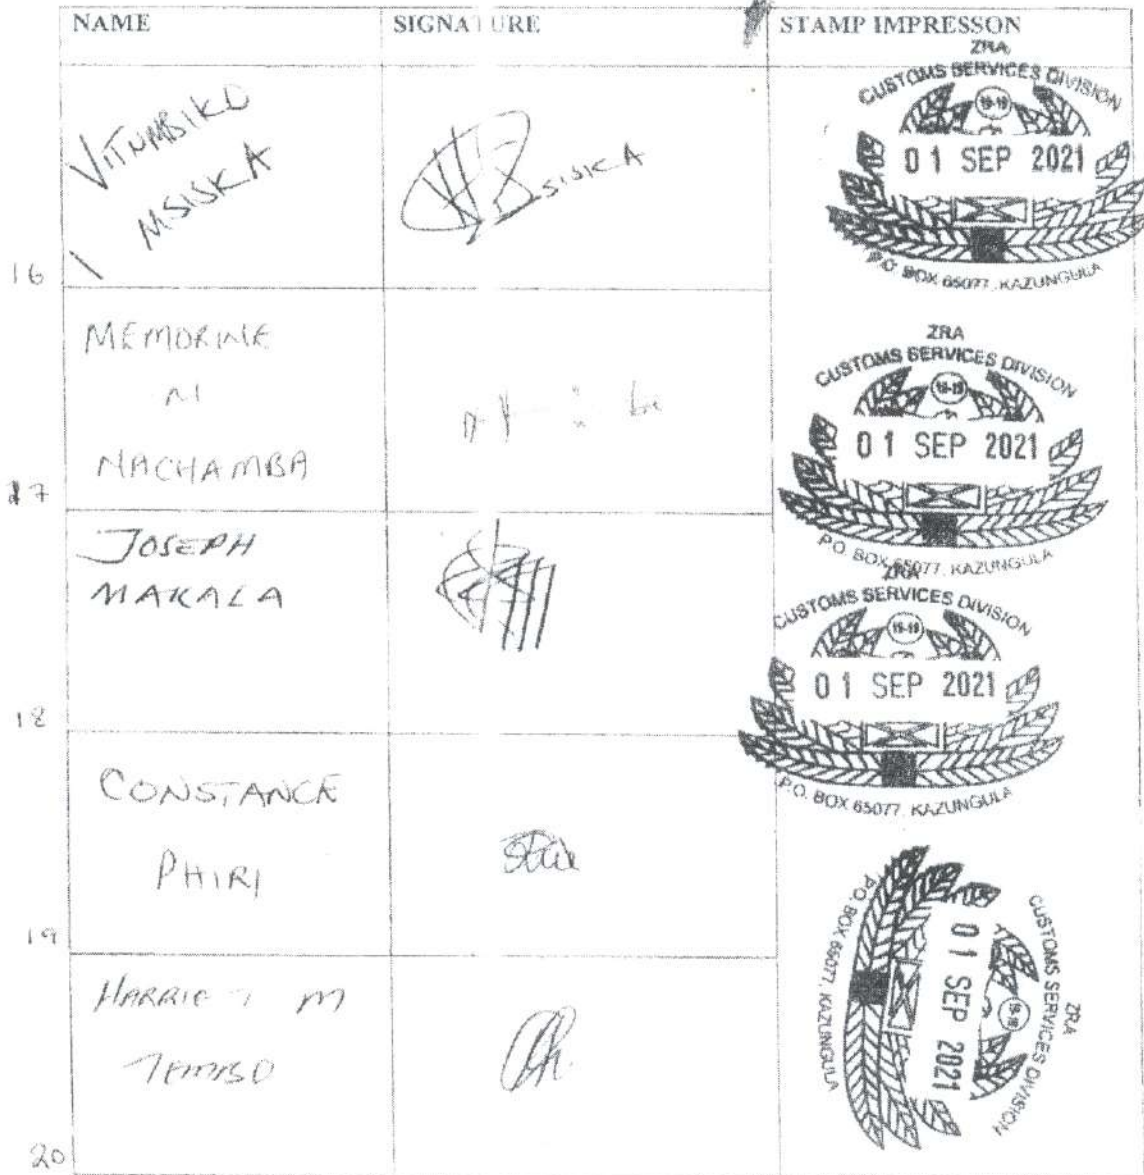 NAME SIGNATURE STAMP IMPRESSON
VITUMBIKO
MSISKA
SISKA
16
ZRA
CUSTOMS SERVICES DIVISION
19-19
01 SEP 2021
P.O. BOX 65077, KAZUNGULA
MEMORINE
N
NACHAMBA
17
ZRA
CUSTOMS SERVICES DIVISION
19-19
01 SEP 2021
P.O. BOX 65077, KAZUNGULA
JOSEPH
MAKALA
18
ZRA
CUSTOMS SERVICES DIVISION
19-19
01 SEP 2021
P.O. BOX 65077, KAZUNGULA
CONSTANCE
PHIRI
19
HARRIET M
TEMBO
20
ZRA
CUSTOMS SERVICES DIVISION
19-19
01 SEP 2021
P.O. BOX 65077, KAZUNGULA